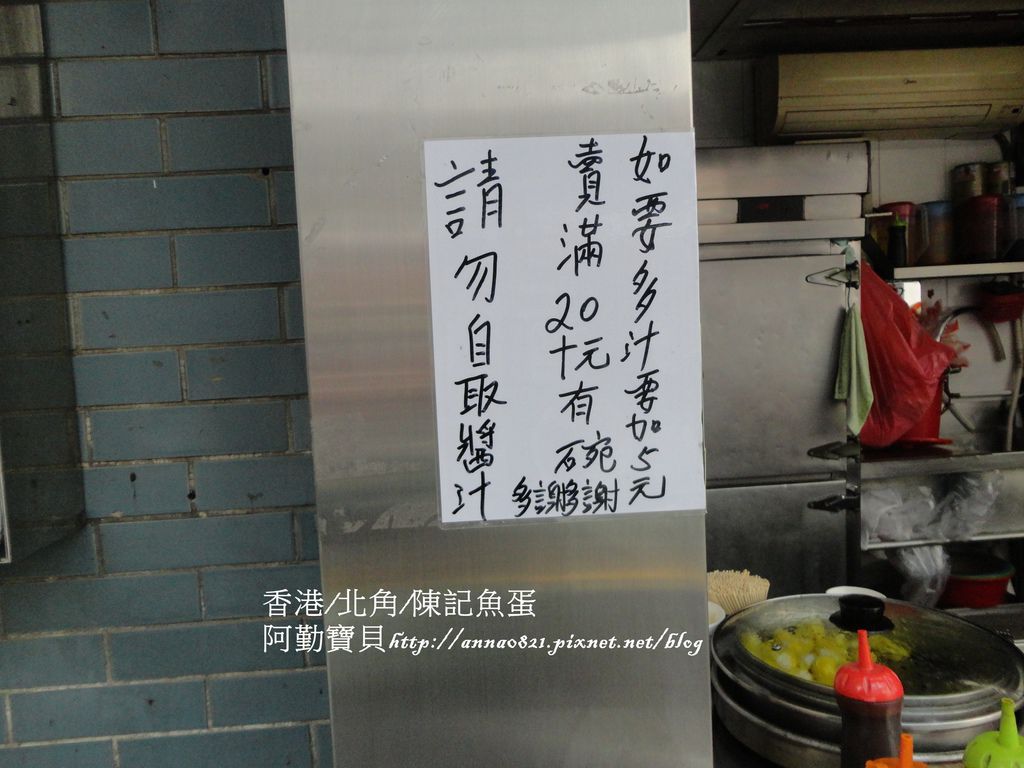 如要多汁要加5元
賣滿20十元有碗
多謝多謝
請勿自取醬汁
香港/北角/陳記魚蛋
阿勤寶貝http://anna0821.pixnet.net/blog